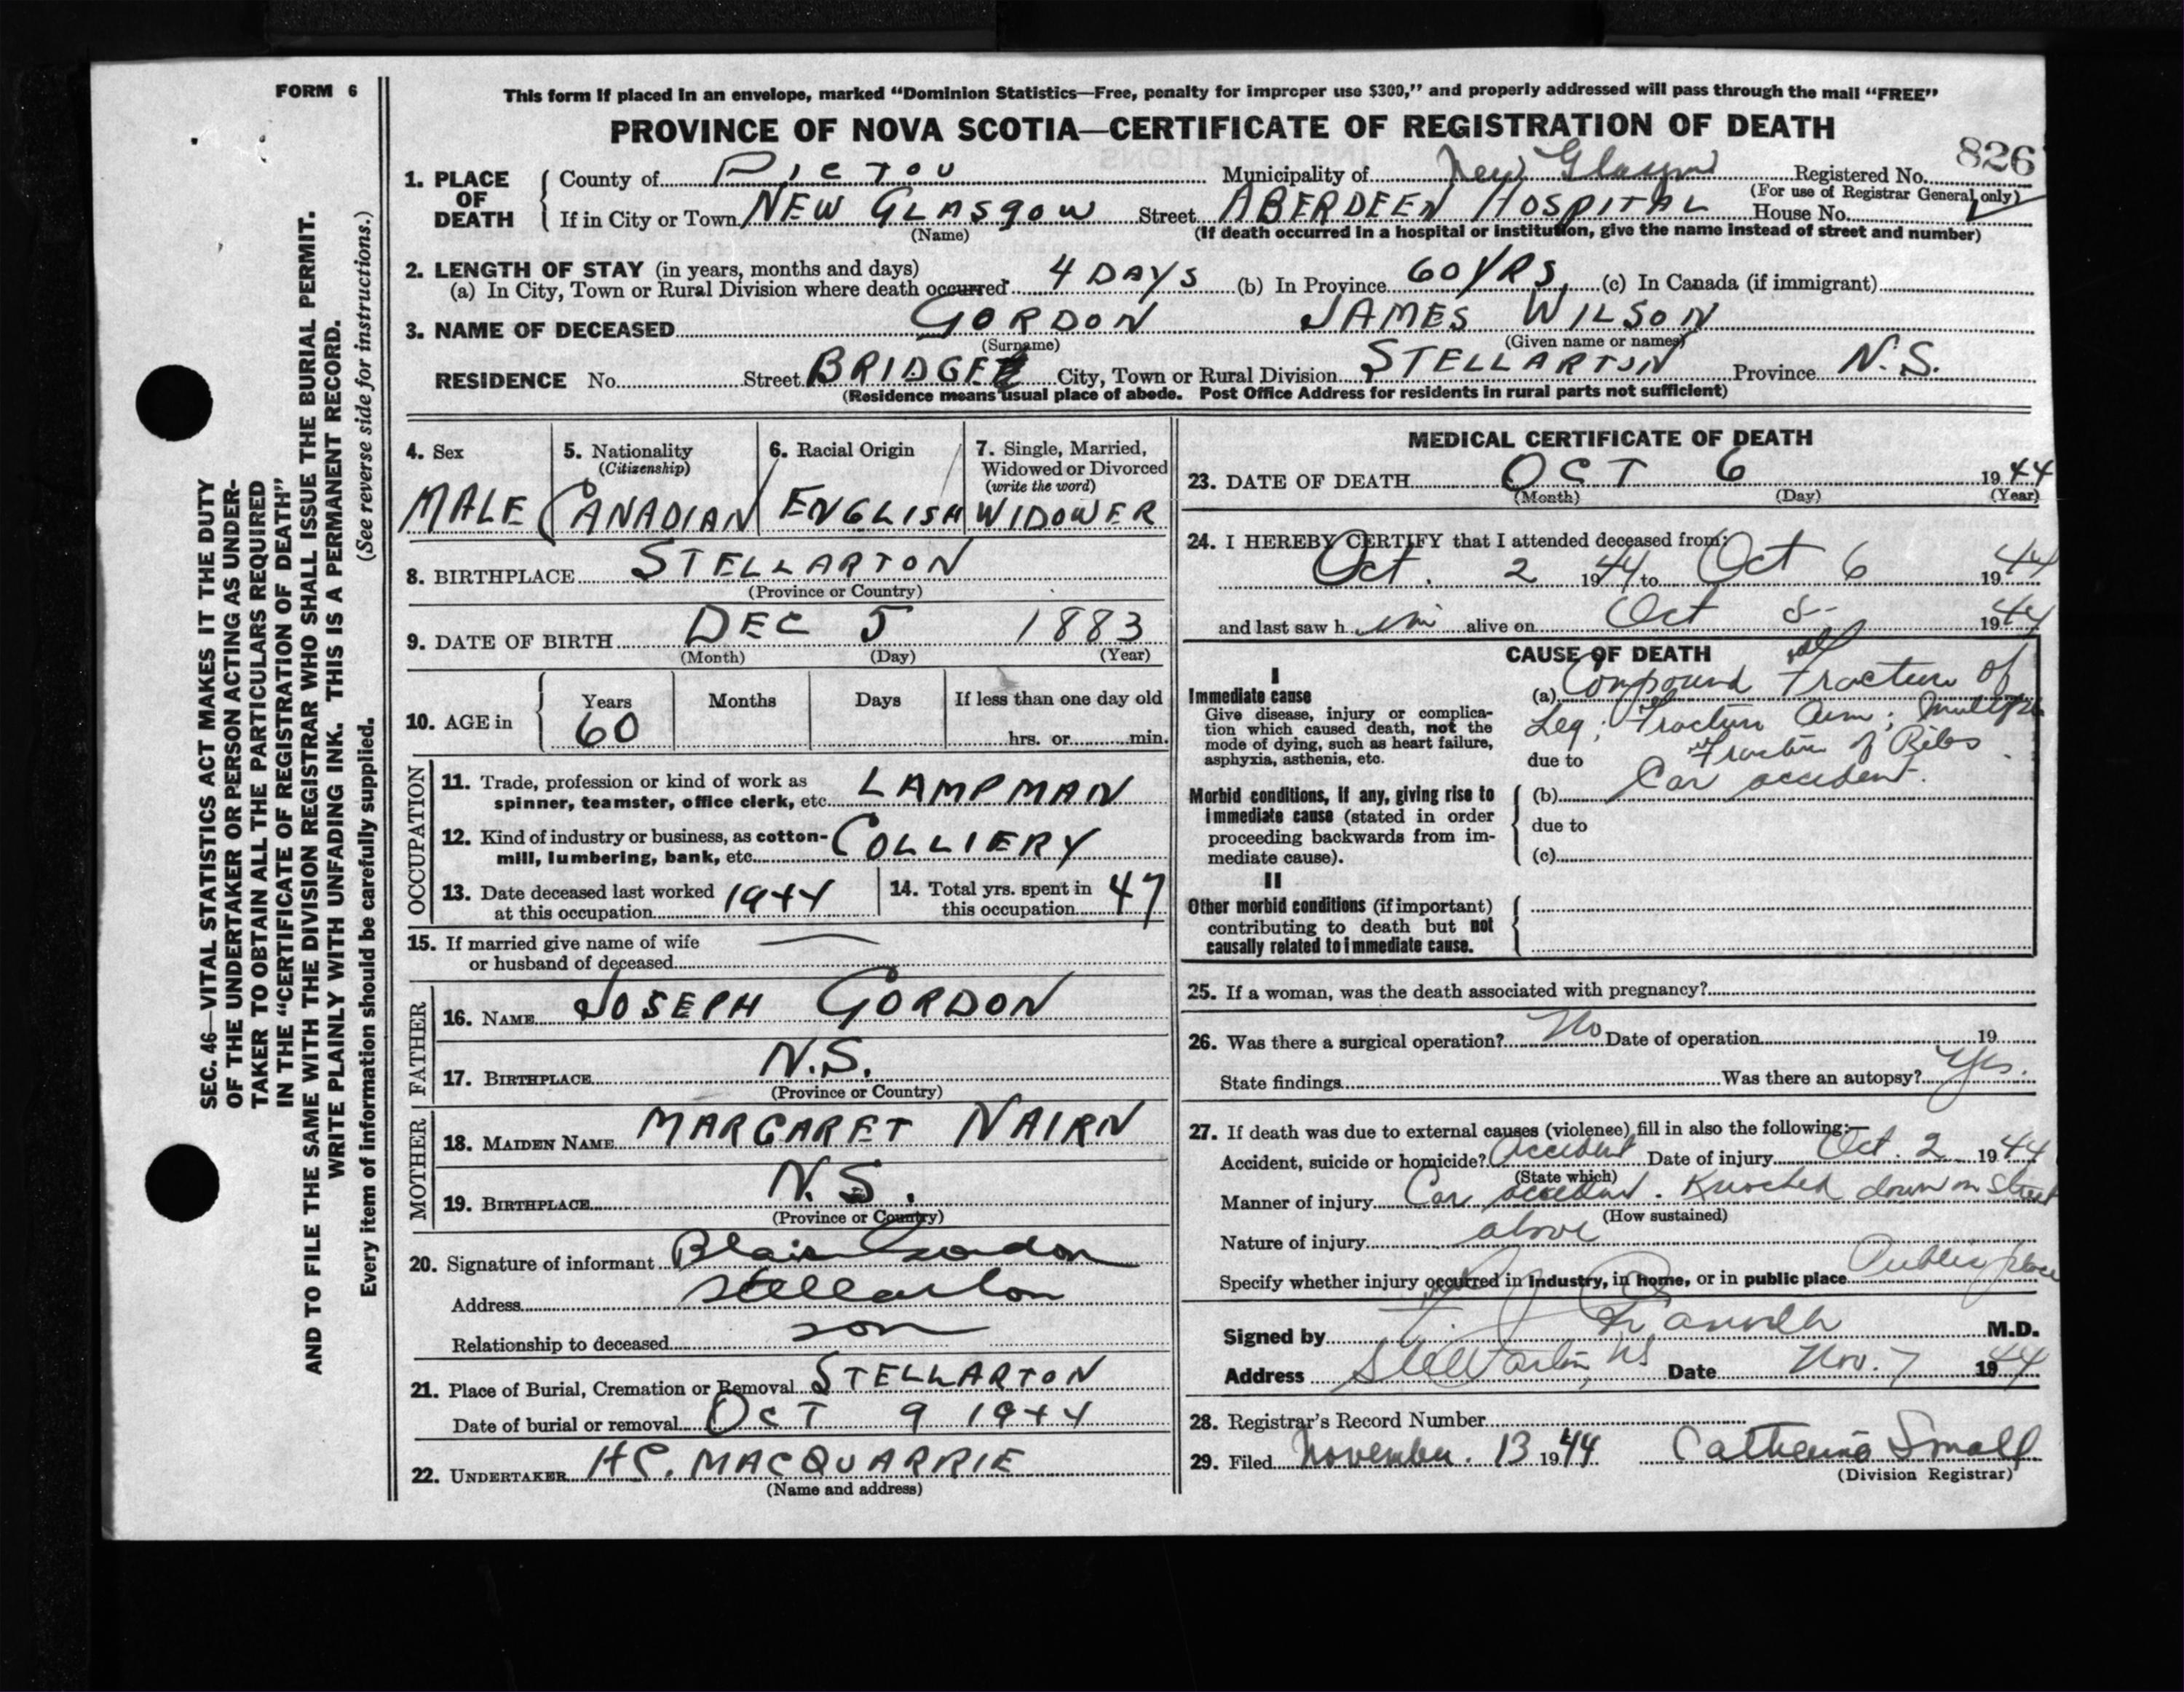 FORM 6
This form if placed in an envelope, marked "Dominion Statistics—Free, penalty for improper use $300," and properly addressed will pass through the mail "FREE"
PROVINCE OF NOVA SCOTIA—CERTIFICATE OF REGISTRATION OF DEATH
826
1. PLACE OF DEATH
County of PICTOU Municipality of New Glasgow Registered No.
(For use of Registrar General only)
If in City or Town NEW GLASGOW Street ABERDEEN HOSPITAL House No.
(Name) (If death occurred in a hospital or institution, give the name instead of street and number)
2. LENGTH OF STAY (in years, months and days)
(a) In City, Town or Rural Division where death occurred 4 DAYS (b) In Province 60 YRS. (c) In Canada (if immigrant)
3. NAME OF DECEASED GORDON JAMES WILSON
(Surname) (Given name or names)
RESIDENCE No. Street BRIDGE City, Town or Rural Division STELLARTON Province N.S.
(Residence means usual place of abode. Post Office Address for residents in rural parts not sufficient)
4. Sex MALE
5. Nationality (Citizenship) CANADIAN
6. Racial Origin ENGLISH
7. Single, Married, Widowed or Divorced (write the word) WIDOWER
8. BIRTHPLACE STELLARTON
(Province or Country)
9. DATE OF BIRTH DEC 5 1883
(Month) (Day) (Year)
10. AGE in Years 60 Months Days If less than one day old
hrs. or min.
OCCUPATION
11. Trade, profession or kind of work as
spinner, teamster, office clerk, etc. LAMPMAN
12. Kind of industry or business, as cotton-
mill, lumbering, bank, etc. COLLIERY
13. Date deceased last worked
at this occupation 1944
14. Total yrs. spent in
this occupation 47
15. If married give name of wife
or husband of deceased —
FATHER
16. NAME JOSEPH GORDON
17. BIRTHPLACE N.S.
(Province or Country)
MOTHER
18. MAIDEN NAME MARGARET NAIRN
19. BIRTHPLACE N.S.
(Province or Country)
20. Signature of informant Blair Gordon
Address Stellarton
Relationship to deceased son
21. Place of Burial, Cremation or Removal STELLARTON
Date of burial or removal OCT 9 1944
22. UNDERTAKER HC. MACQUARRIE
(Name and address)
MEDICAL CERTIFICATE OF DEATH
23. DATE OF DEATH OCT 6 1944
(Month) (Day) (Year)
24. I HEREBY CERTIFY that I attended deceased from:
Oct. 2 1944 to Oct 6 1944
and last saw h im alive on Oct 5- 1944
CAUSE OF DEATH
I
Immediate cause
Give disease, injury or complica-
tion which caused death, not the
mode of dying, such as heart failure,
asphyxia, asthenia, etc.
(a) Compound Fracture of
Leg; Fracture Arm; Multiple
due to Fracture of Ribs
Morbid conditions, if any, giving rise to
immediate cause (stated in order
proceeding backwards from im-
mediate cause).
(b) Car accident.
due to
(c)
II
Other morbid conditions (if important)
contributing to death but not
causally related to immediate cause.
25. If a woman, was the death associated with pregnancy?
26. Was there a surgical operation? No Date of operation 19
State findings Was there an autopsy? Yes.
27. If death was due to external causes (violence) fill in also the following:—
Accident, suicide or homicide? Accident Date of injury Oct. 2 1944
(State which)
Manner of injury Car accident. Knocked down on Street
(How sustained)
Nature of injury above
Specify whether injury occurred in industry, in home, or in public place Public place
Signed by M.D.
Address Stellarton, NS Date Nov. 7 1944
28. Registrar's Record Number
29. Filed November. 13 1944 Catherine Small
(Division Registrar)
SEC. 46—VITAL STATISTICS ACT MAKES IT THE DUTY
OF THE UNDERTAKER OR PERSON ACTING AS UNDER-
TAKER TO OBTAIN ALL THE PARTICULARS REQUIRED
IN THE "CERTIFICATE OF REGISTRATION OF DEATH"
AND TO FILE THE SAME WITH THE DIVISION REGISTRAR WHO SHALL ISSUE THE BURIAL PERMIT.
WRITE PLAINLY WITH UNFADING INK. THIS IS A PERMANENT RECORD.
Every item of information should be carefully supplied. (See reverse side for instructions.)